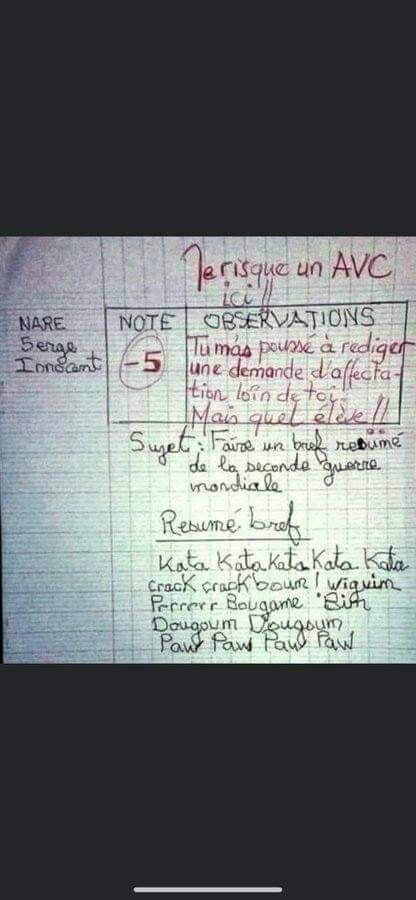 Je risque un AVC
ici !!
NARE
Serge
Innocent
NOTE
-5
OBSERVATIONS
Tu m'as poussé à rediger
une demande d'affecta-
tion loin de toi.
Mais quel élève !!
Sujet : Faire un bref resumé
de la seconde guerre
mondiale
Resumé bref
Kata Kata Kata Kata Kata
crack crack boum !
Perrerr Bougame
Dougoum Dougoum
Paw Paw Paw Paw